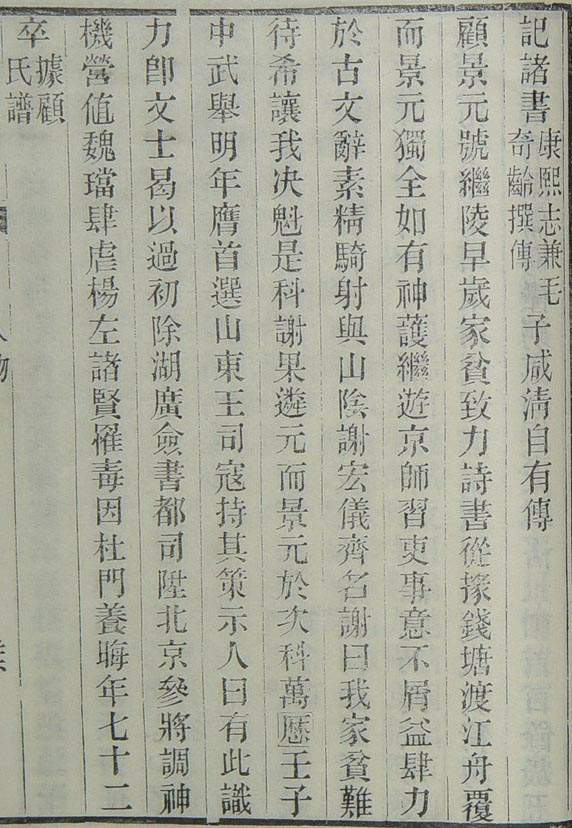 記諸書康熙志兼毛奇齡撰傳子咸清自有傳
顧景元號繼陵早歲家貧致力詩書從掾錢塘渡江舟覆
而景元獨全如有神護繼遊京師習吏事意不屑益肆力
於古文辭素精騎射與山陰謝宏儀齊名謝曰我家貧難
待希讓我決魁是科謝果遴元而景元於次科萬歷壬子
中武舉明年膺首選山東王司寇持其策示人曰有此識
力卽文士曷以過初除湖廣僉書都司陞北京參將調神
機營值魏璫肆虐楊左諸賢罹毒因杜門養晦年七十二
卒據顧氏譜
人物